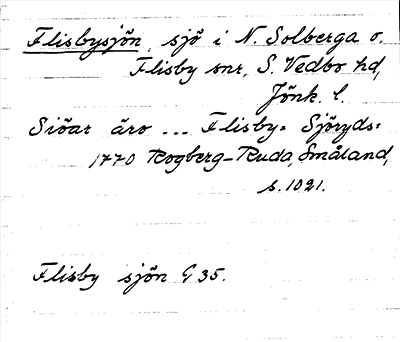 Flisbysjön, sjö i N. Solberga o.
Flisby snr, S. Vedbo hd,
Jönk. l.
Siöar äro ... Flisby= Sjöryds=
1770 Rogberg-Ruda, Småland,
s. 1021.
Flisby sjön G 35.